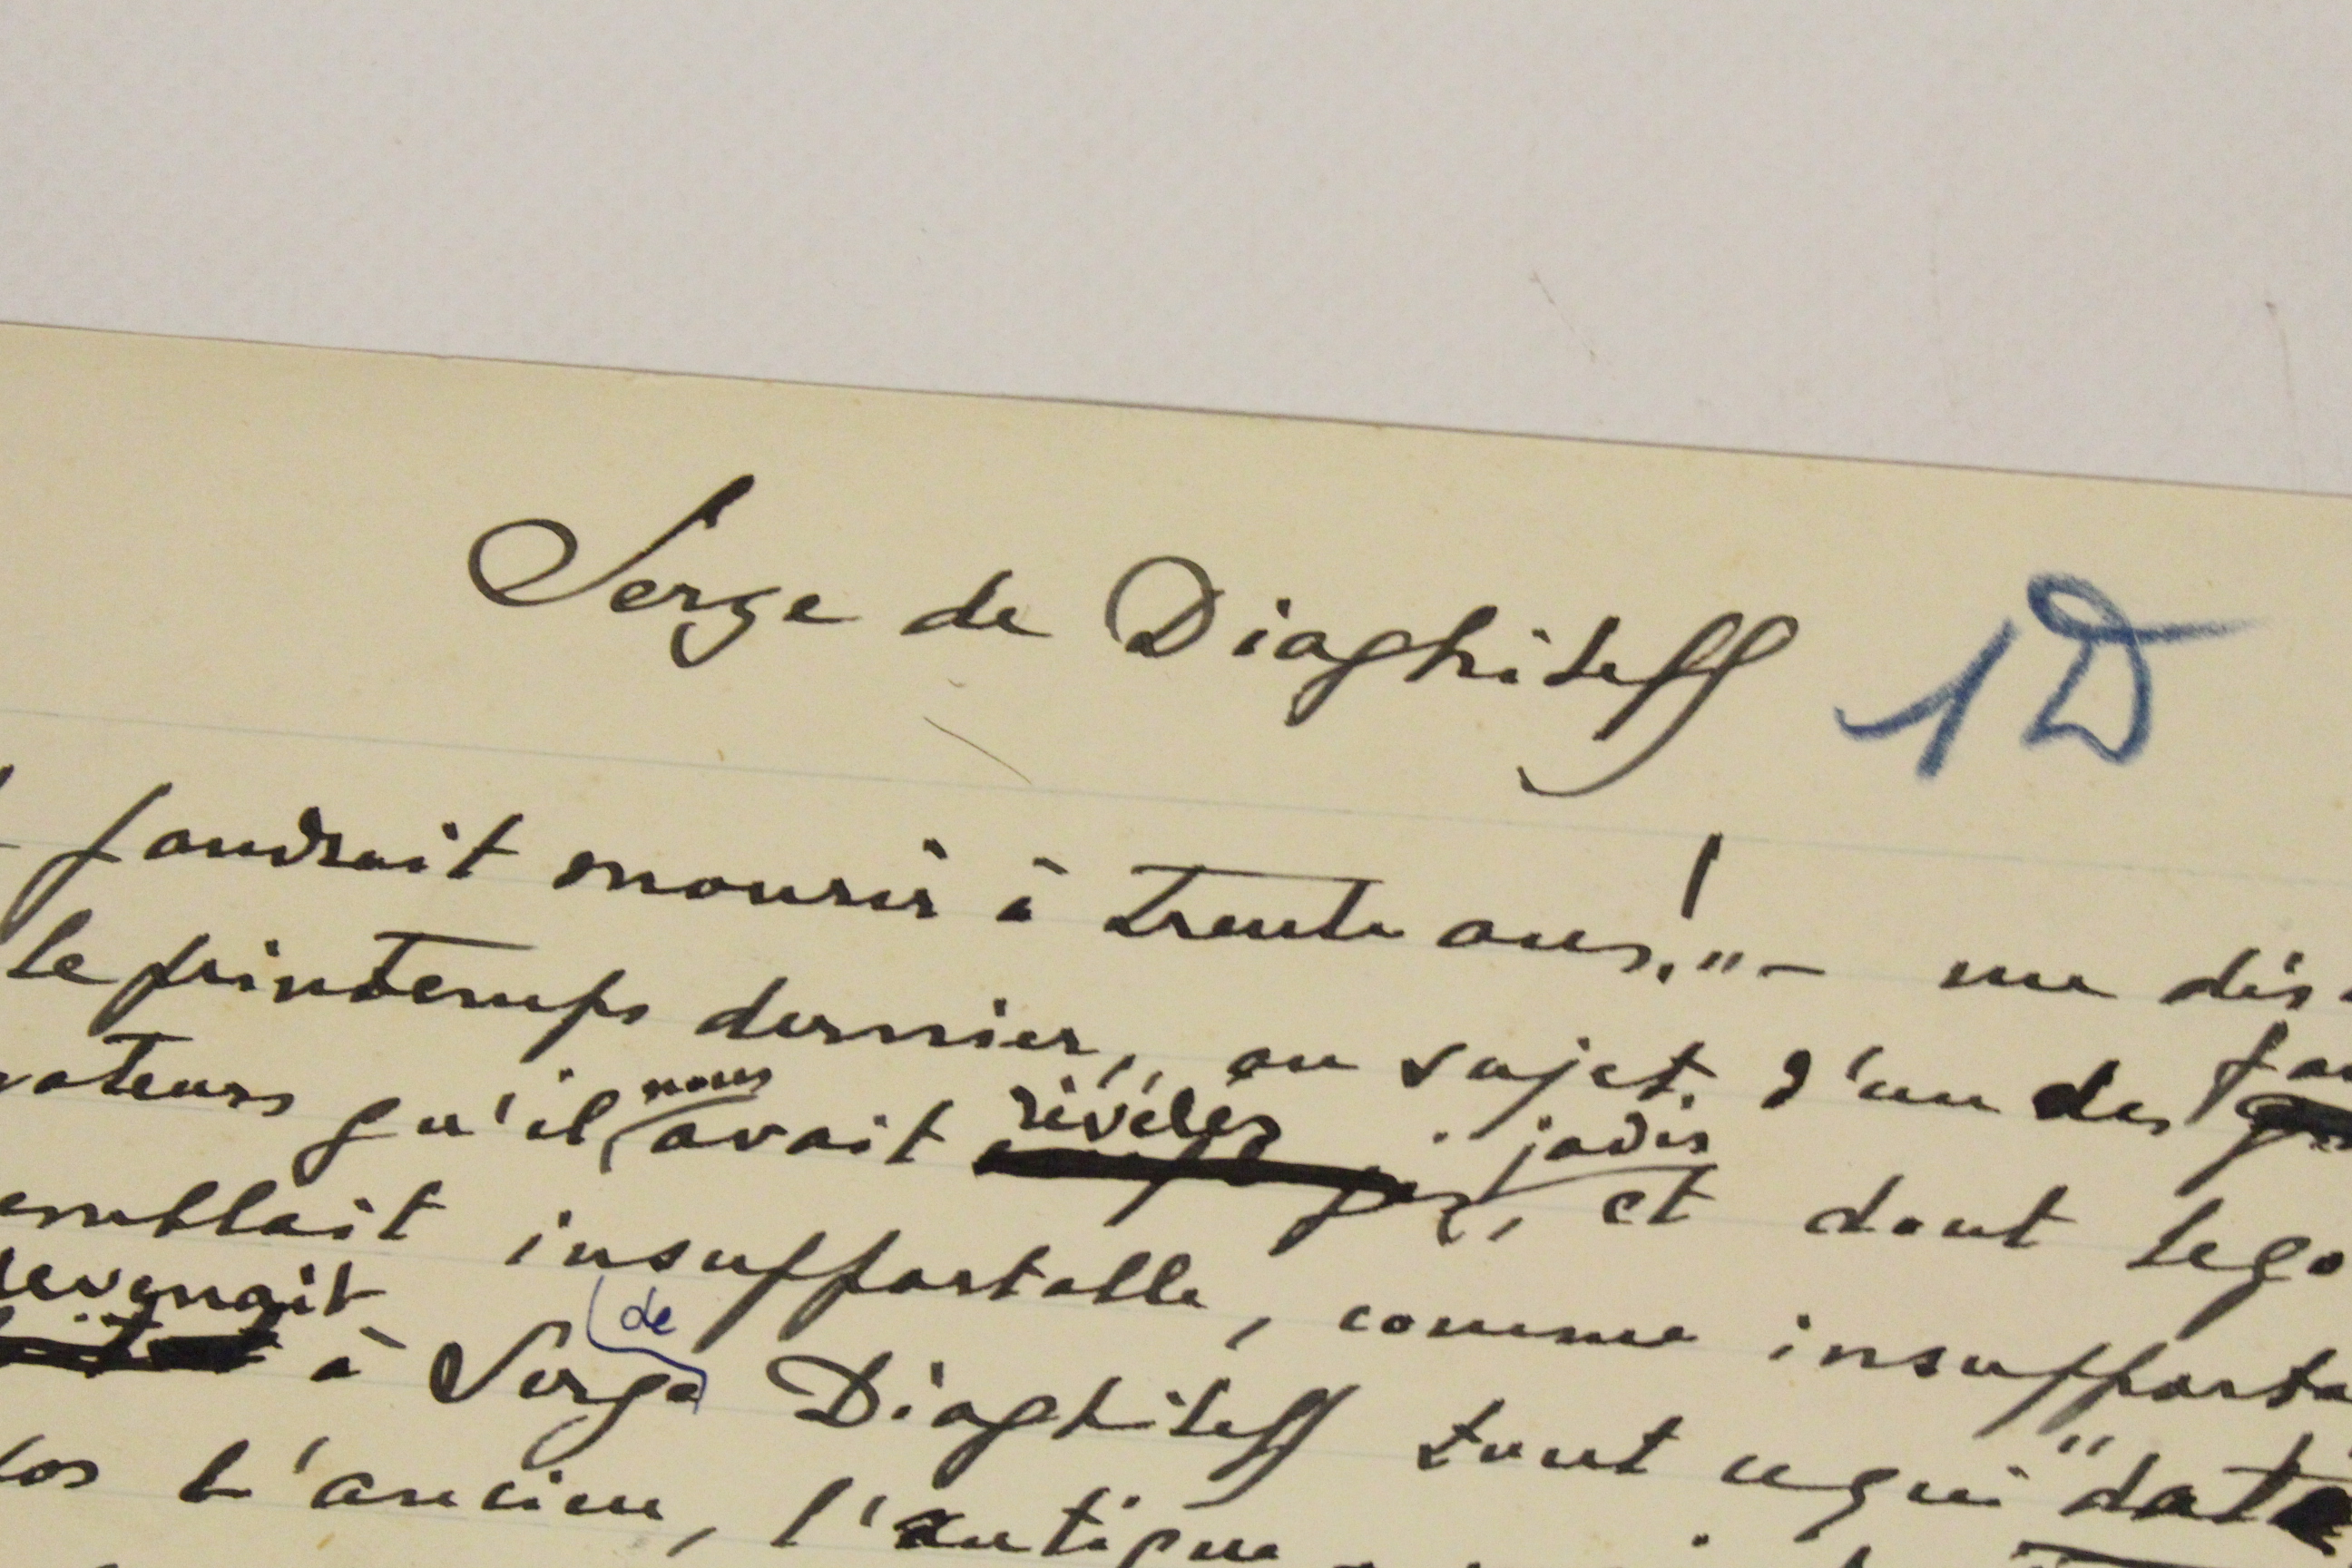 Serge de Diaghileff 1D
faudrait mourir à trente ans!" - me dis
le printemps dernier, au sujet d'un des
vateurs qu'il nous avait révélés jadis, et dont
emblait insupportable, comme insupporta
devenait à Serge de Diaghileff tout ce qui "date
l'ancien, l'antique